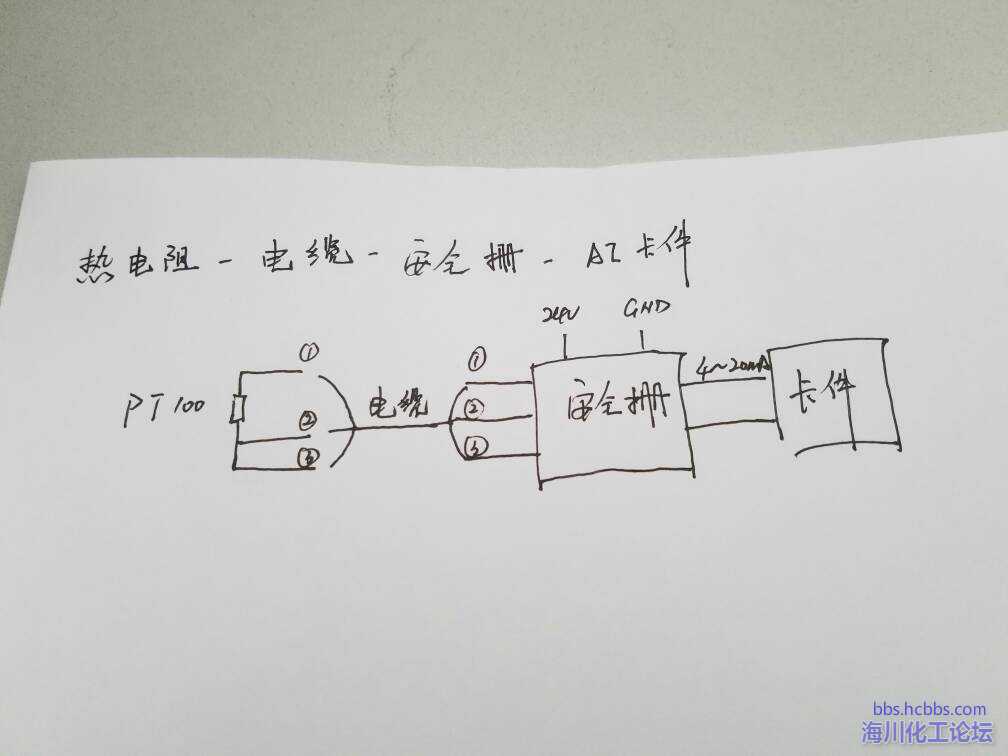 热电阻 - 电缆 - 安全栅 - AI卡件
24V GND
① ① 4~20mA
PT100 ② 电缆 ② 安全栅 卡件
③ ③
bbs.hcbbs.com
海川化工论坛